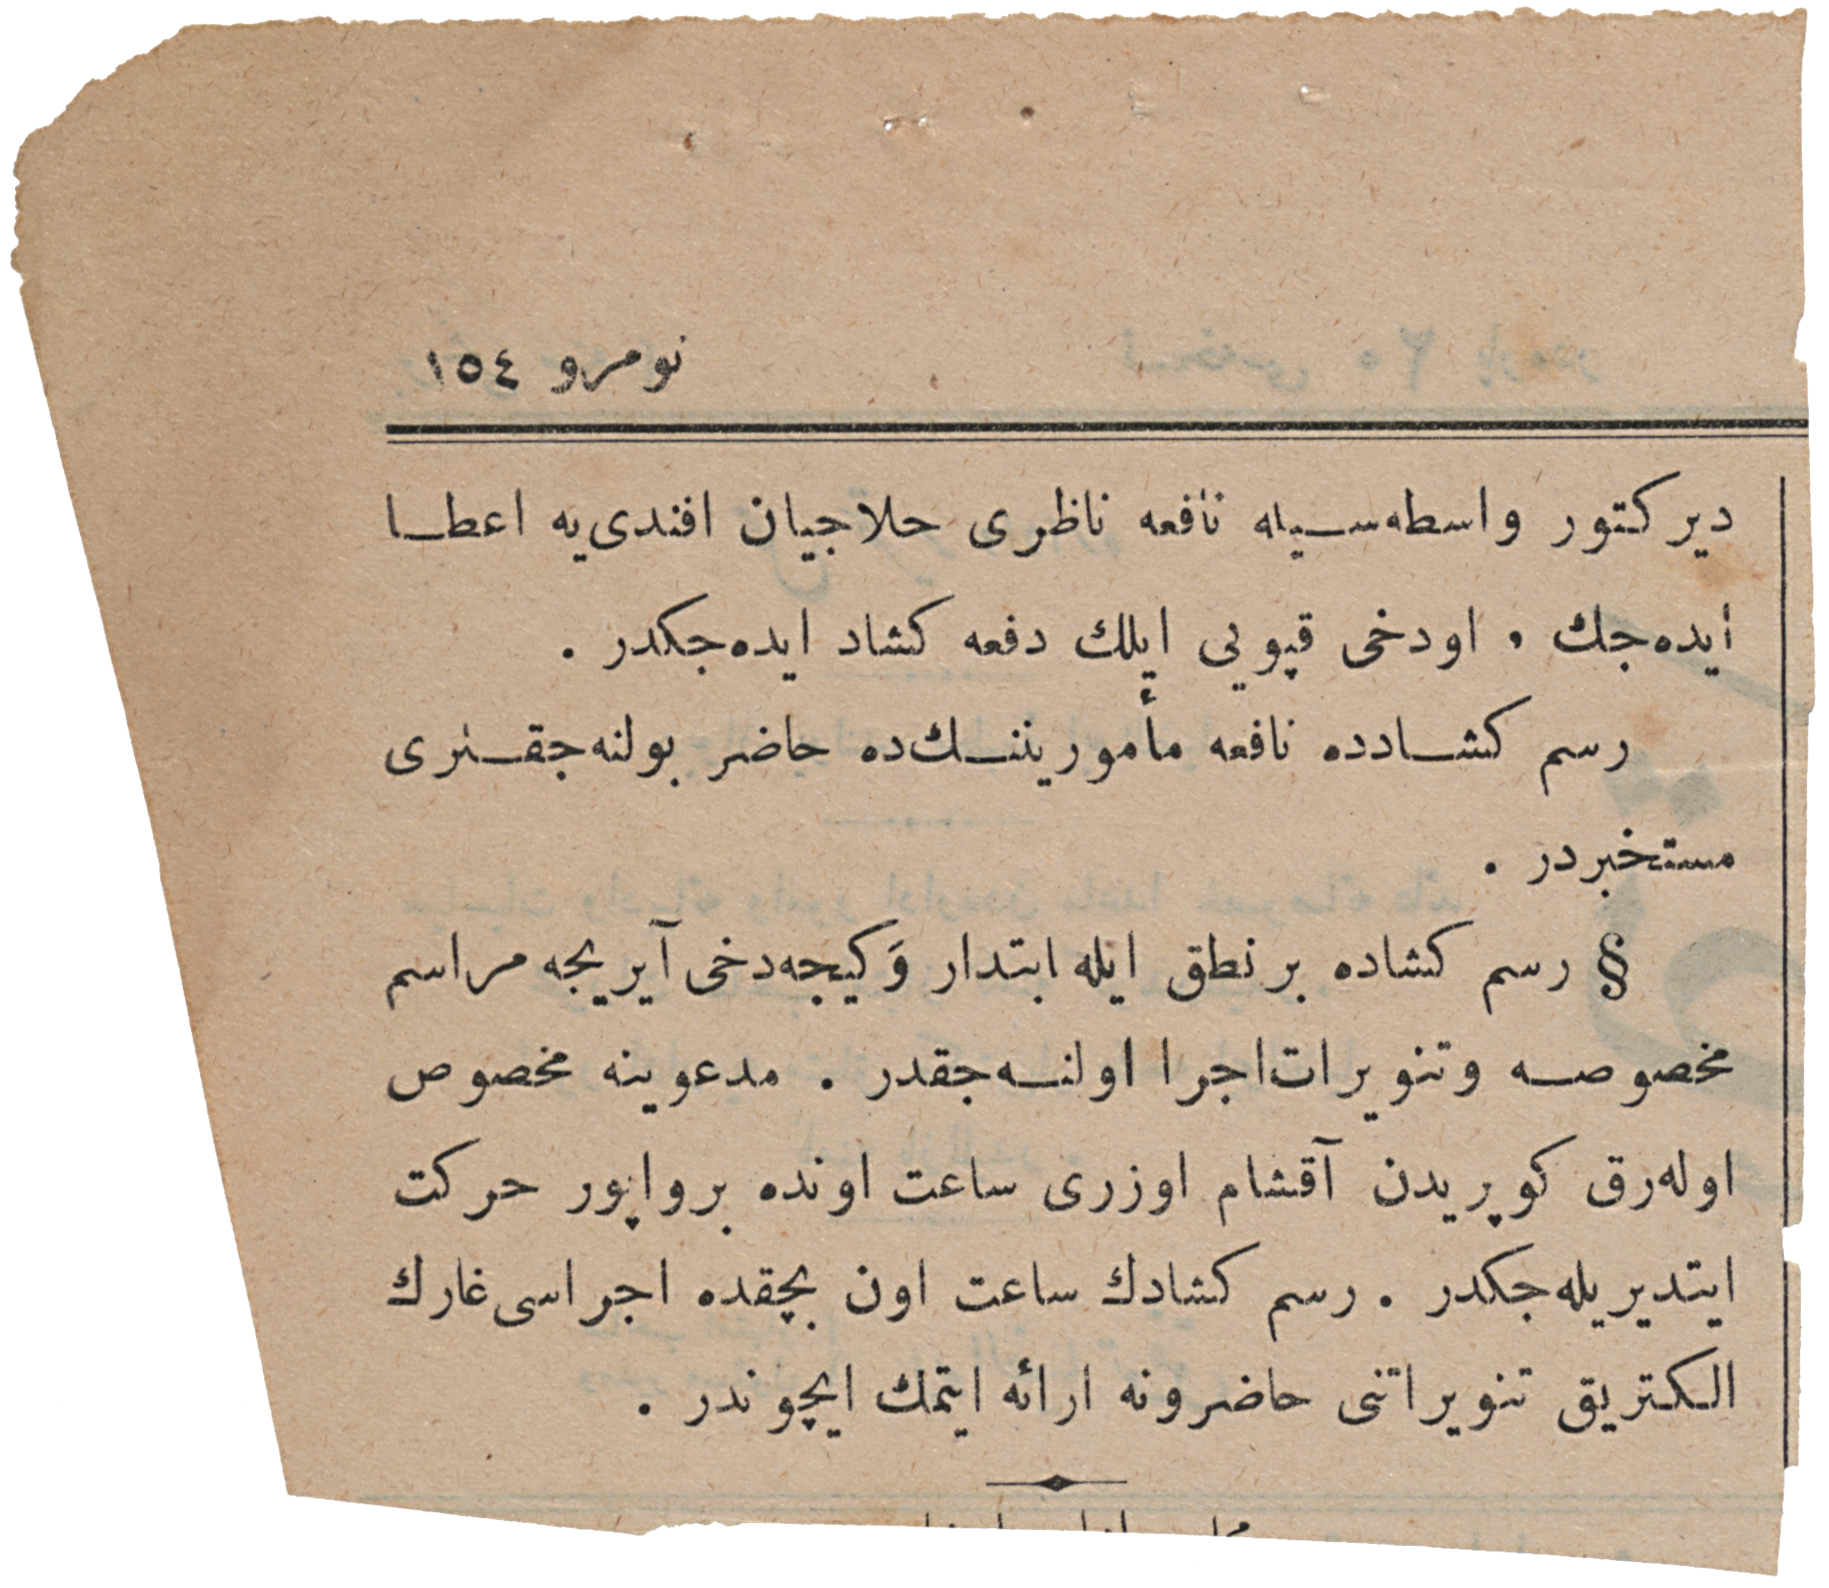 نومرو ١٥٤
ديركتور واسطه‌سيله نافعه ناظری حلاجيان افندی‌يه اعطا
ايده‌جك ، اودخی قپويی ايلك دفعه كشاد ايده‌جكدر .
رسم كشادده نافعه مأموريننك‌ده حاضر بولنه‌جقلری
مستخبردر .
§ رسم كشاده بر نطق ايله ابتدار وَ كيجه‌دخی آيريجه مراسم
مخصوصه وتنويرات‌اجرا اولنه‌جقدر . مدعوينه مخصوص
اوله‌رق كوپريدن آقشام اوزری ساعت اونده برواپور حركت
ايتديريله‌جكدر . رسم كشادك ساعت اون بچقده اجراسی غارك
الكتريق تنويراتنی حاضرونه ارائه ايتمك ايچوندر .